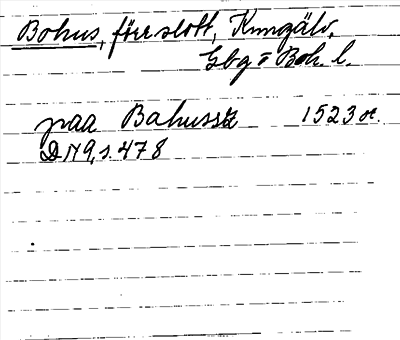 Bohus, förr slott, Kungälv,
Gbg o Boh. l.
paa Bahussz 1523 or.
DN 9, s. 478